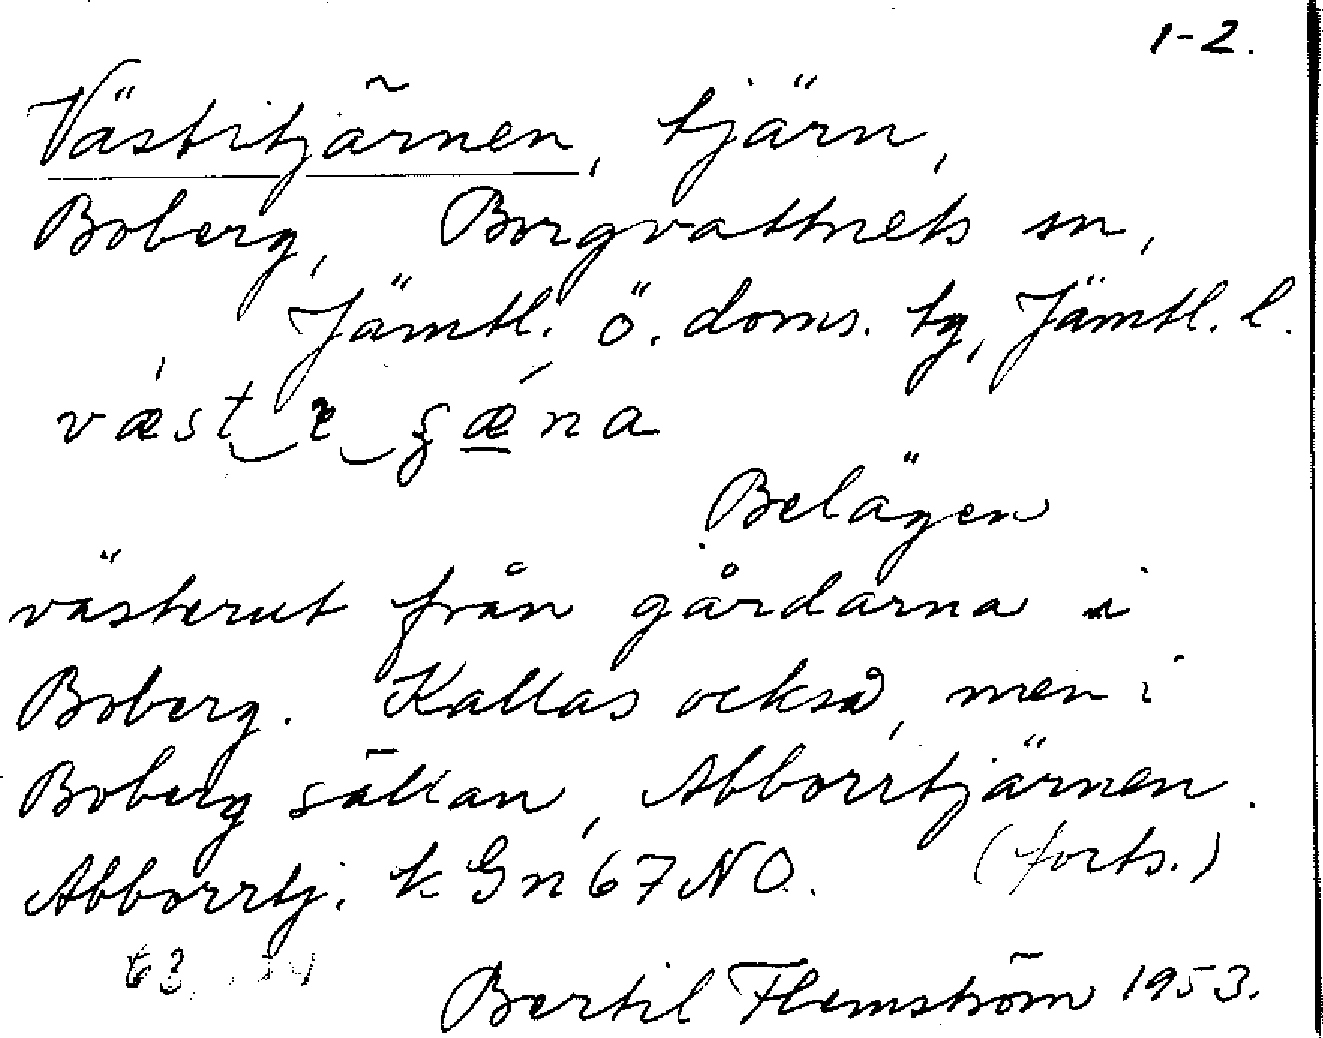 1-2.
Västitjärnen, tjärn,
Boberg, Borgvattnets sn,
Jämtl. ö. doms. tg, Jämtl. l.
Belägen
västerut från gårdarna i
Boberg. Kallas också, men i
Boberg sällan, Abborrtjärnen.
Abborrtj. k Gn 67 NO. (forts.)
Bertil Flemström 1953.